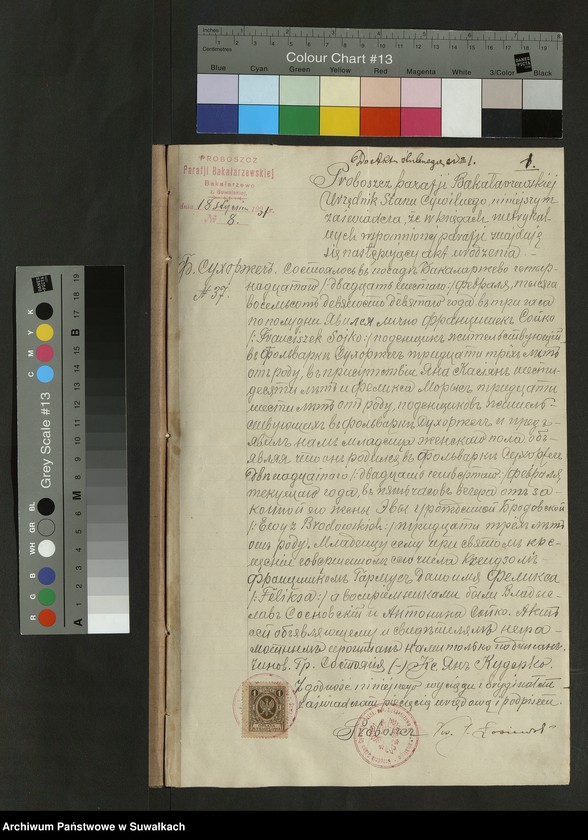 Inches
Centimetres
Colour Chart #13
Blue Cyan Green Yellow Red Magenta White 3/Color Black
Grey Scale #13
C M Y K
R G B WH GR BL
A M B
PROBOSZCZ
Parafji Bakałarzewskiej
Bakałarzewo
dnia 18 stycznia 1931 r.
№ 8.
1.
Proboszcz parafji Bakałarzewskiej
Urzędnik Stanu Cywilnego, niniejszym
zaświadcza, że w księgach metrykal-
nych wspomnianej parafji znajduje
się następujący akt urodzenia
Ф. Сухоржечъ.
№ 37.
Состоялось въ посадѣ Бакаларжево четыр-
надцатаго /двадцать шестаго/ февраля, тысяча
восемьсотъ девяносто девятаго года въ три часа
пополудни. Явился лично Францишекъ Сойко
/:Franciszek Sojko:/ поденщикъ жительствующій
въ фольваркѣ Сухоржечъ тридцати трехъ лѣтъ
отъ роду, въ присутствіи Яна
десяти лѣтъ и Феликса тридцати
шести лѣтъ отъ роду, поденщиковъ житель-
ствующихъ въ фольваркѣ Сухоржечъ и предъ-
явилъ намъ младенца женскаго пола объ-
являя что онъ родился въ фольваркѣ Сухоржечъ
двѣнадцатаго /:двадцать четвертаго:/ февраля
текущаго года, въ пять часовъ вечера отъ за-
конной его жены Эвы урожденной Бродовской
/:Ewy z Brodowskich:/ тридцати трехъ лѣтъ
отъ роду. Младенцу сему при святомъ кре-
щеніи совершенномъ сего числа Ксендзомъ
Францишкомъ дано имя Феликса
/:Feliksa:/ а воспріемниками были Влады-
славъ Сосновскій и Антонина Сойко. Актъ
сей объявляющему и свидѣтелямъ негра-
мотнымъ прочитанъ нами только подписанъ.
Чинов. Гр. Состоянія (-) Кс. Янъ Кудерко.
Zgodność niniejszego wyciągu z oryginałem
zaświadczam pieczęcią urzędową i podpisem.
Proboszcz
Archiwum Państwowe w Suwałkach